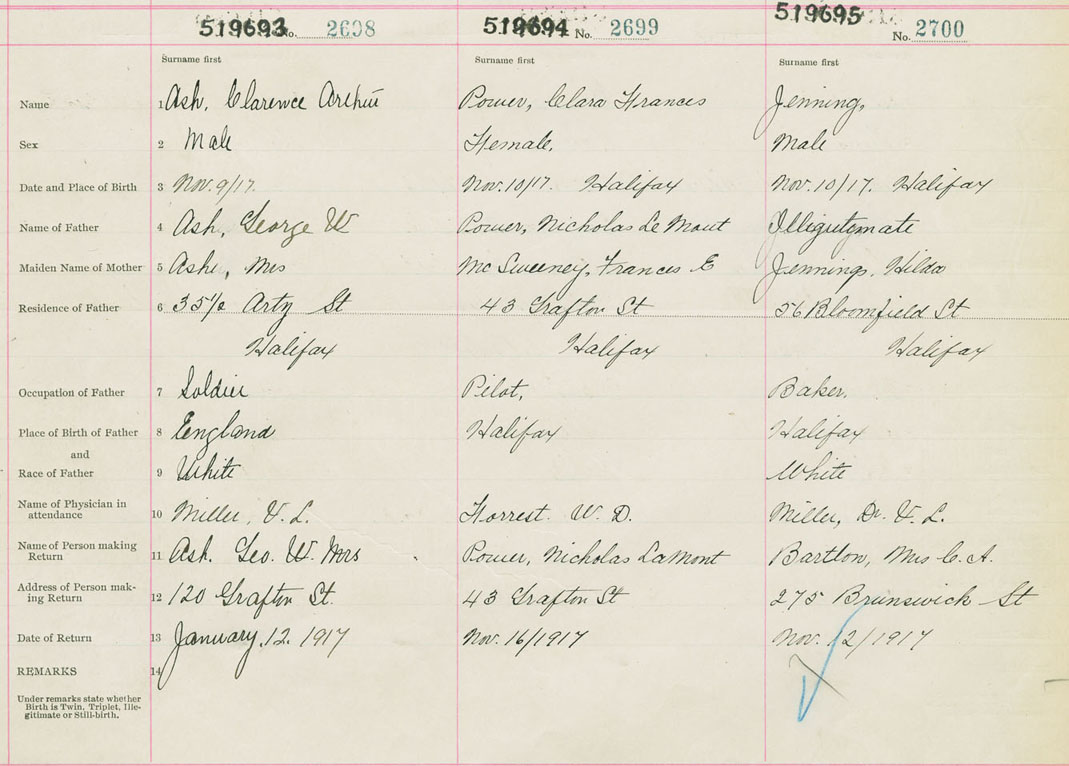 519693 No. 2698 519694 No. 2699 519695 No. 2700
Surname first Surname first Surname first
Name 1 Ash, Clarence Arthur Power, Clara Frances Jenning,
Sex 2 Male Female, Male
Date and Place of Birth 3 Nov. 9/17. Nov. 10/17. Halifax Nov. 10/17. Halifax
Name of Father 4 Ash, George W Power, Nicholas Le Mont Illigutymate
Maiden Name of Mother 5 Ash, Mrs Mc Sweeney, Frances E Jennings, Hilda
Residence of Father 6 35½ Arty St 43 Grafton St 56 Bloomfield St
Halifax Halifax Halifax
Occupation of Father 7 Soldier Pilot, Baker.
Place of Birth of Father 8 England Halifax Halifax
and
Race of Father 9 White White
Name of Physician in
attendance 10 Miller, V. L. Forrest. W. D. Miller, Dr. V. L.
Name of Person making
Return 11 Ash. Geo. W. Mrs Power, Nicholas LaMont Bartlow, Mrs C. A.
Address of Person mak-
ing Return 12 120 Grafton St. 43 Grafton St 275 Brunswick St
Date of Return 13 January. 12. 1917 Nov. 16/1917 Nov. 12/1917
REMARKS 14
Under remarks state whether
Birth is Twin, Triplet, Ille-
gitimate or Still-birth.